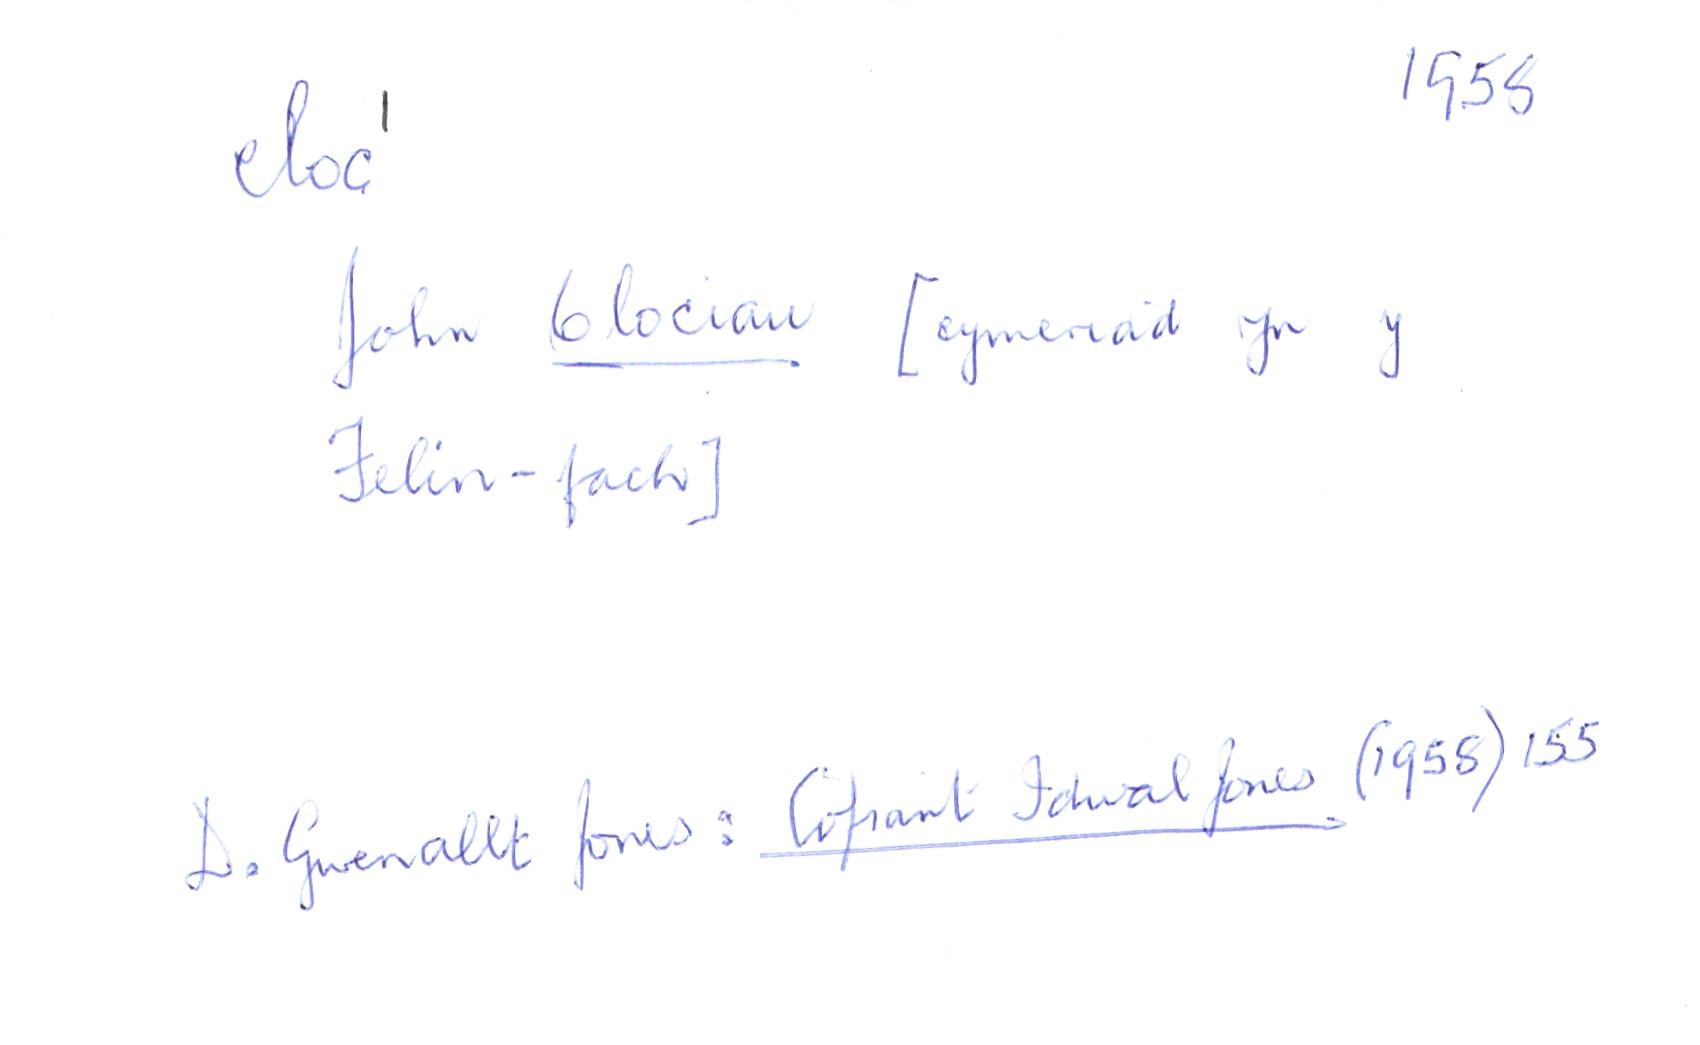 1958
cloc¹
John Clociau [cymeriad yn y
Felin-fach]
D. Gwenallt Jones: Cofiant Idwal Jones (1958) 155